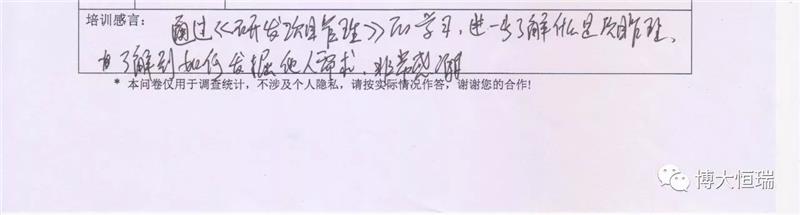 培训感言: 通过《研发项目管理》的学习,进一步了解什么是项目管理、
也了解到如何发掘他人需求,非常感谢
* 本问卷仅用于调查统计,不涉及个人隐私,请按实际情况作答,谢谢您的合作!
博大恒瑞